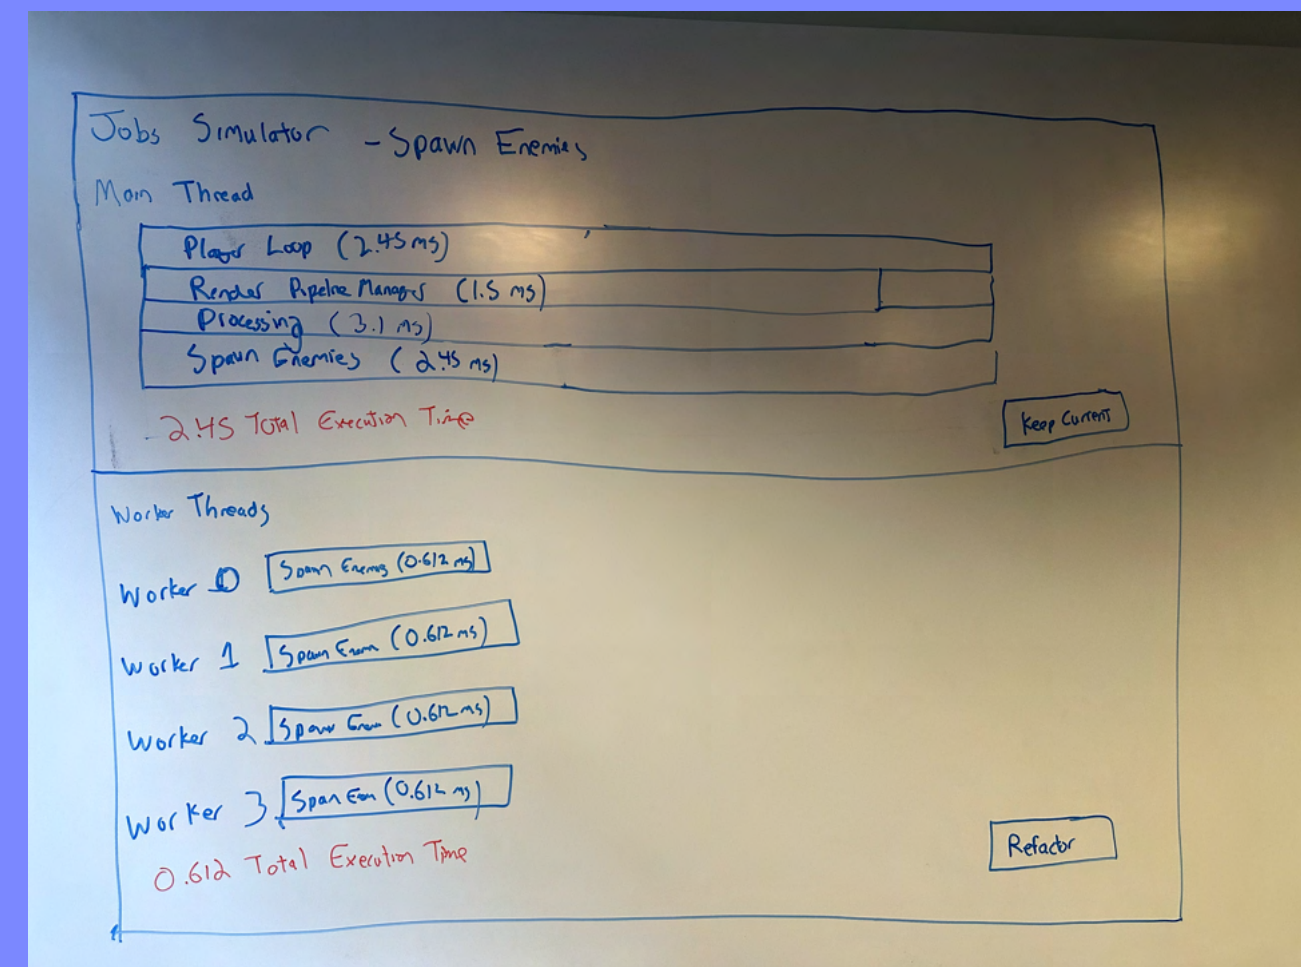 Jobs Simulator - Spawn Enemies
Main Thread
Player Loop (2.45 ms)
Render Pipeline Manager (1.5 ms)
Processing (3.1 ms)
Spawn Enemies (2.45 ms)
2.45 Total Execution Time
Keep Current
Worker Threads
Worker 0 Spawn Enemies (0.612 ms)
Worker 1 Spawn Enem (0.612 ms)
Worker 2 Spawn Enem (0.612 ms)
Worker 3 Span Enm (0.612 ms)
0.612 Total Execution Time
Refactor